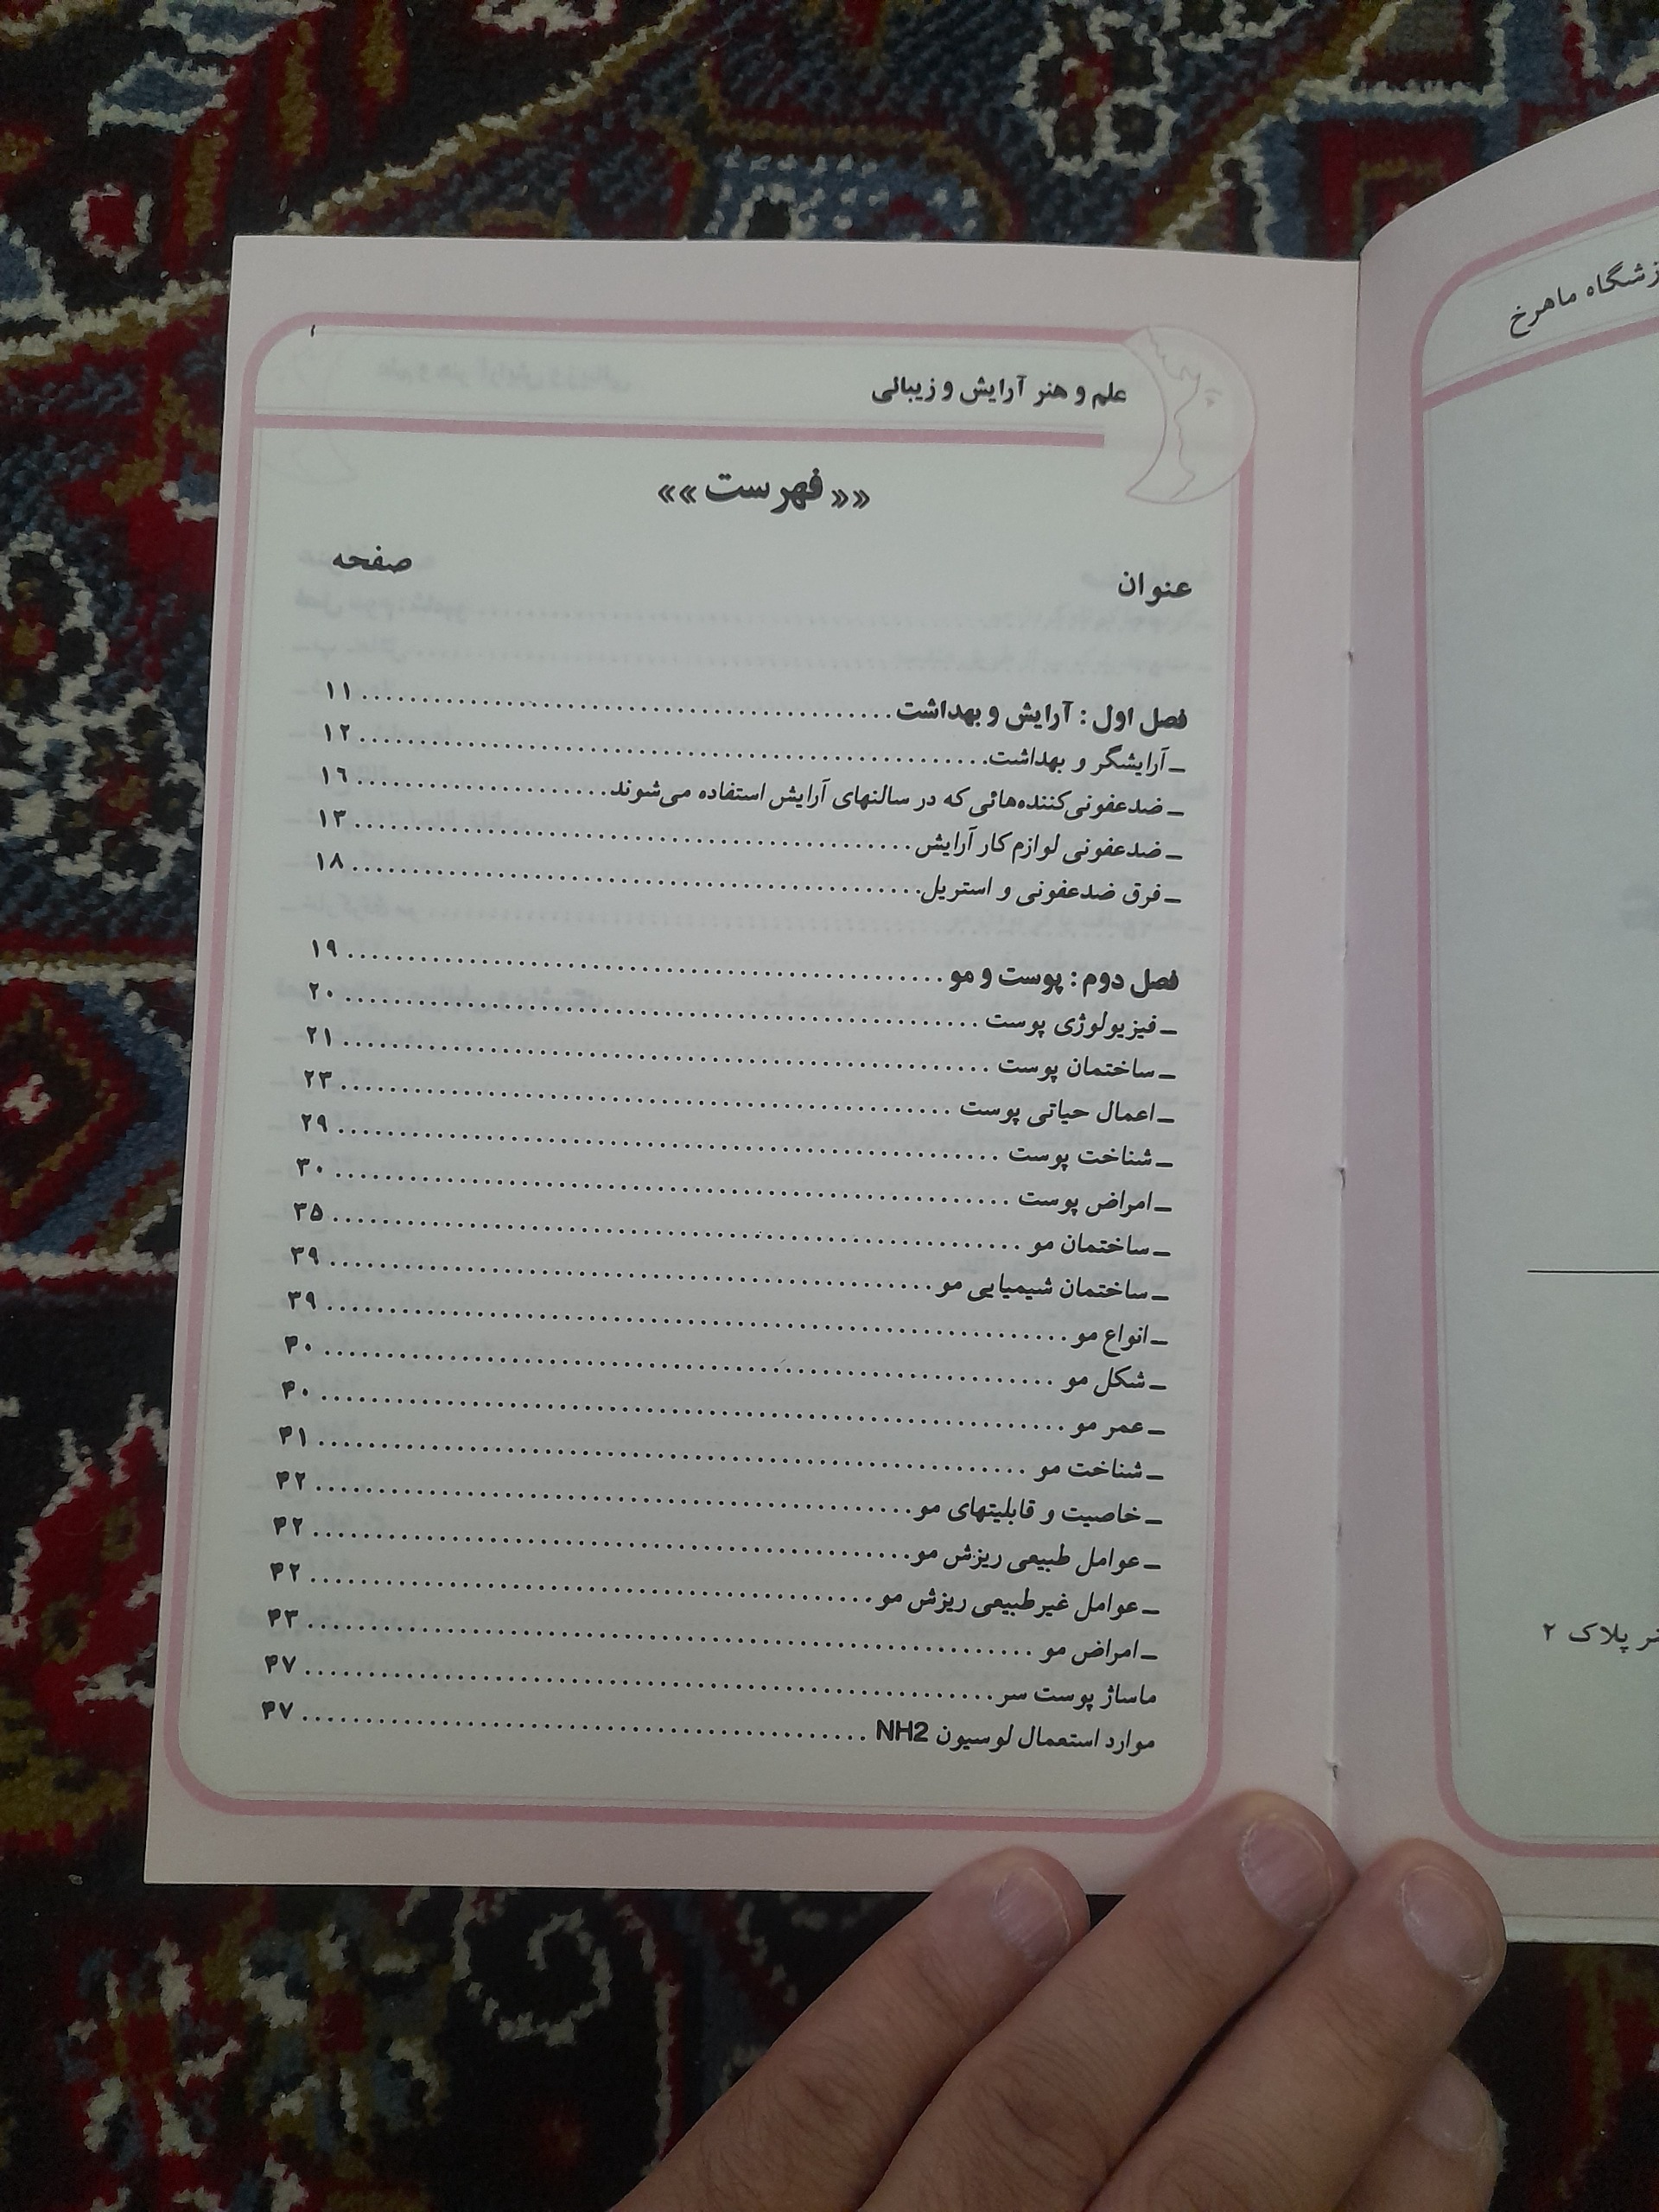 علم و هنر آرایش و زیبائی
«« فهرست »»
عنوان صفحه
فصل اول : آرایش و بهداشت ........ ۱۱
ـ آرایشگر و بهداشت ........ ۱۲
ـ ضدعفونی‌کننده‌هائی که در سالنهای آرایش استفاده می‌شوند ........ ۱۶
ـ ضدعفونی لوازم کار آرایش ........ ۱۳
ـ فرق ضدعفونی و استریل ........ ۱۸
فصل دوم : پوست و مو ........ ۱۹
ـ فیزیولوژی پوست ........ ۲۰
ـ ساختمان پوست ........ ۲۱
ـ اعمال حیاتی پوست ........ ۲۳
ـ شناخت پوست ........ ۲۹
ـ امراض پوست ........ ۳۰
ـ ساختمان مو ........ ۳۵
ـ ساختمان شیمیایی مو ........ ۳۹
ـ انواع مو ........ ۳۹
ـ شکل مو ........ ۴۰
ـ عمر مو ........ ۴۰
ـ شناخت مو ........ ۴۱
ـ خاصیت و قابلیتهای مو ........ ۴۲
ـ عوامل طبیعی ریزش مو ........ ۴۲
ـ عوامل غیرطبیعی ریزش مو ........ ۴۲
ـ امراض مو ........ ۴۳
ماساژ پوست سر ........ ۴۷
موارد استعمال لوسیون NH2 ........ ۴۷
ماهرخ
پلاک ۲